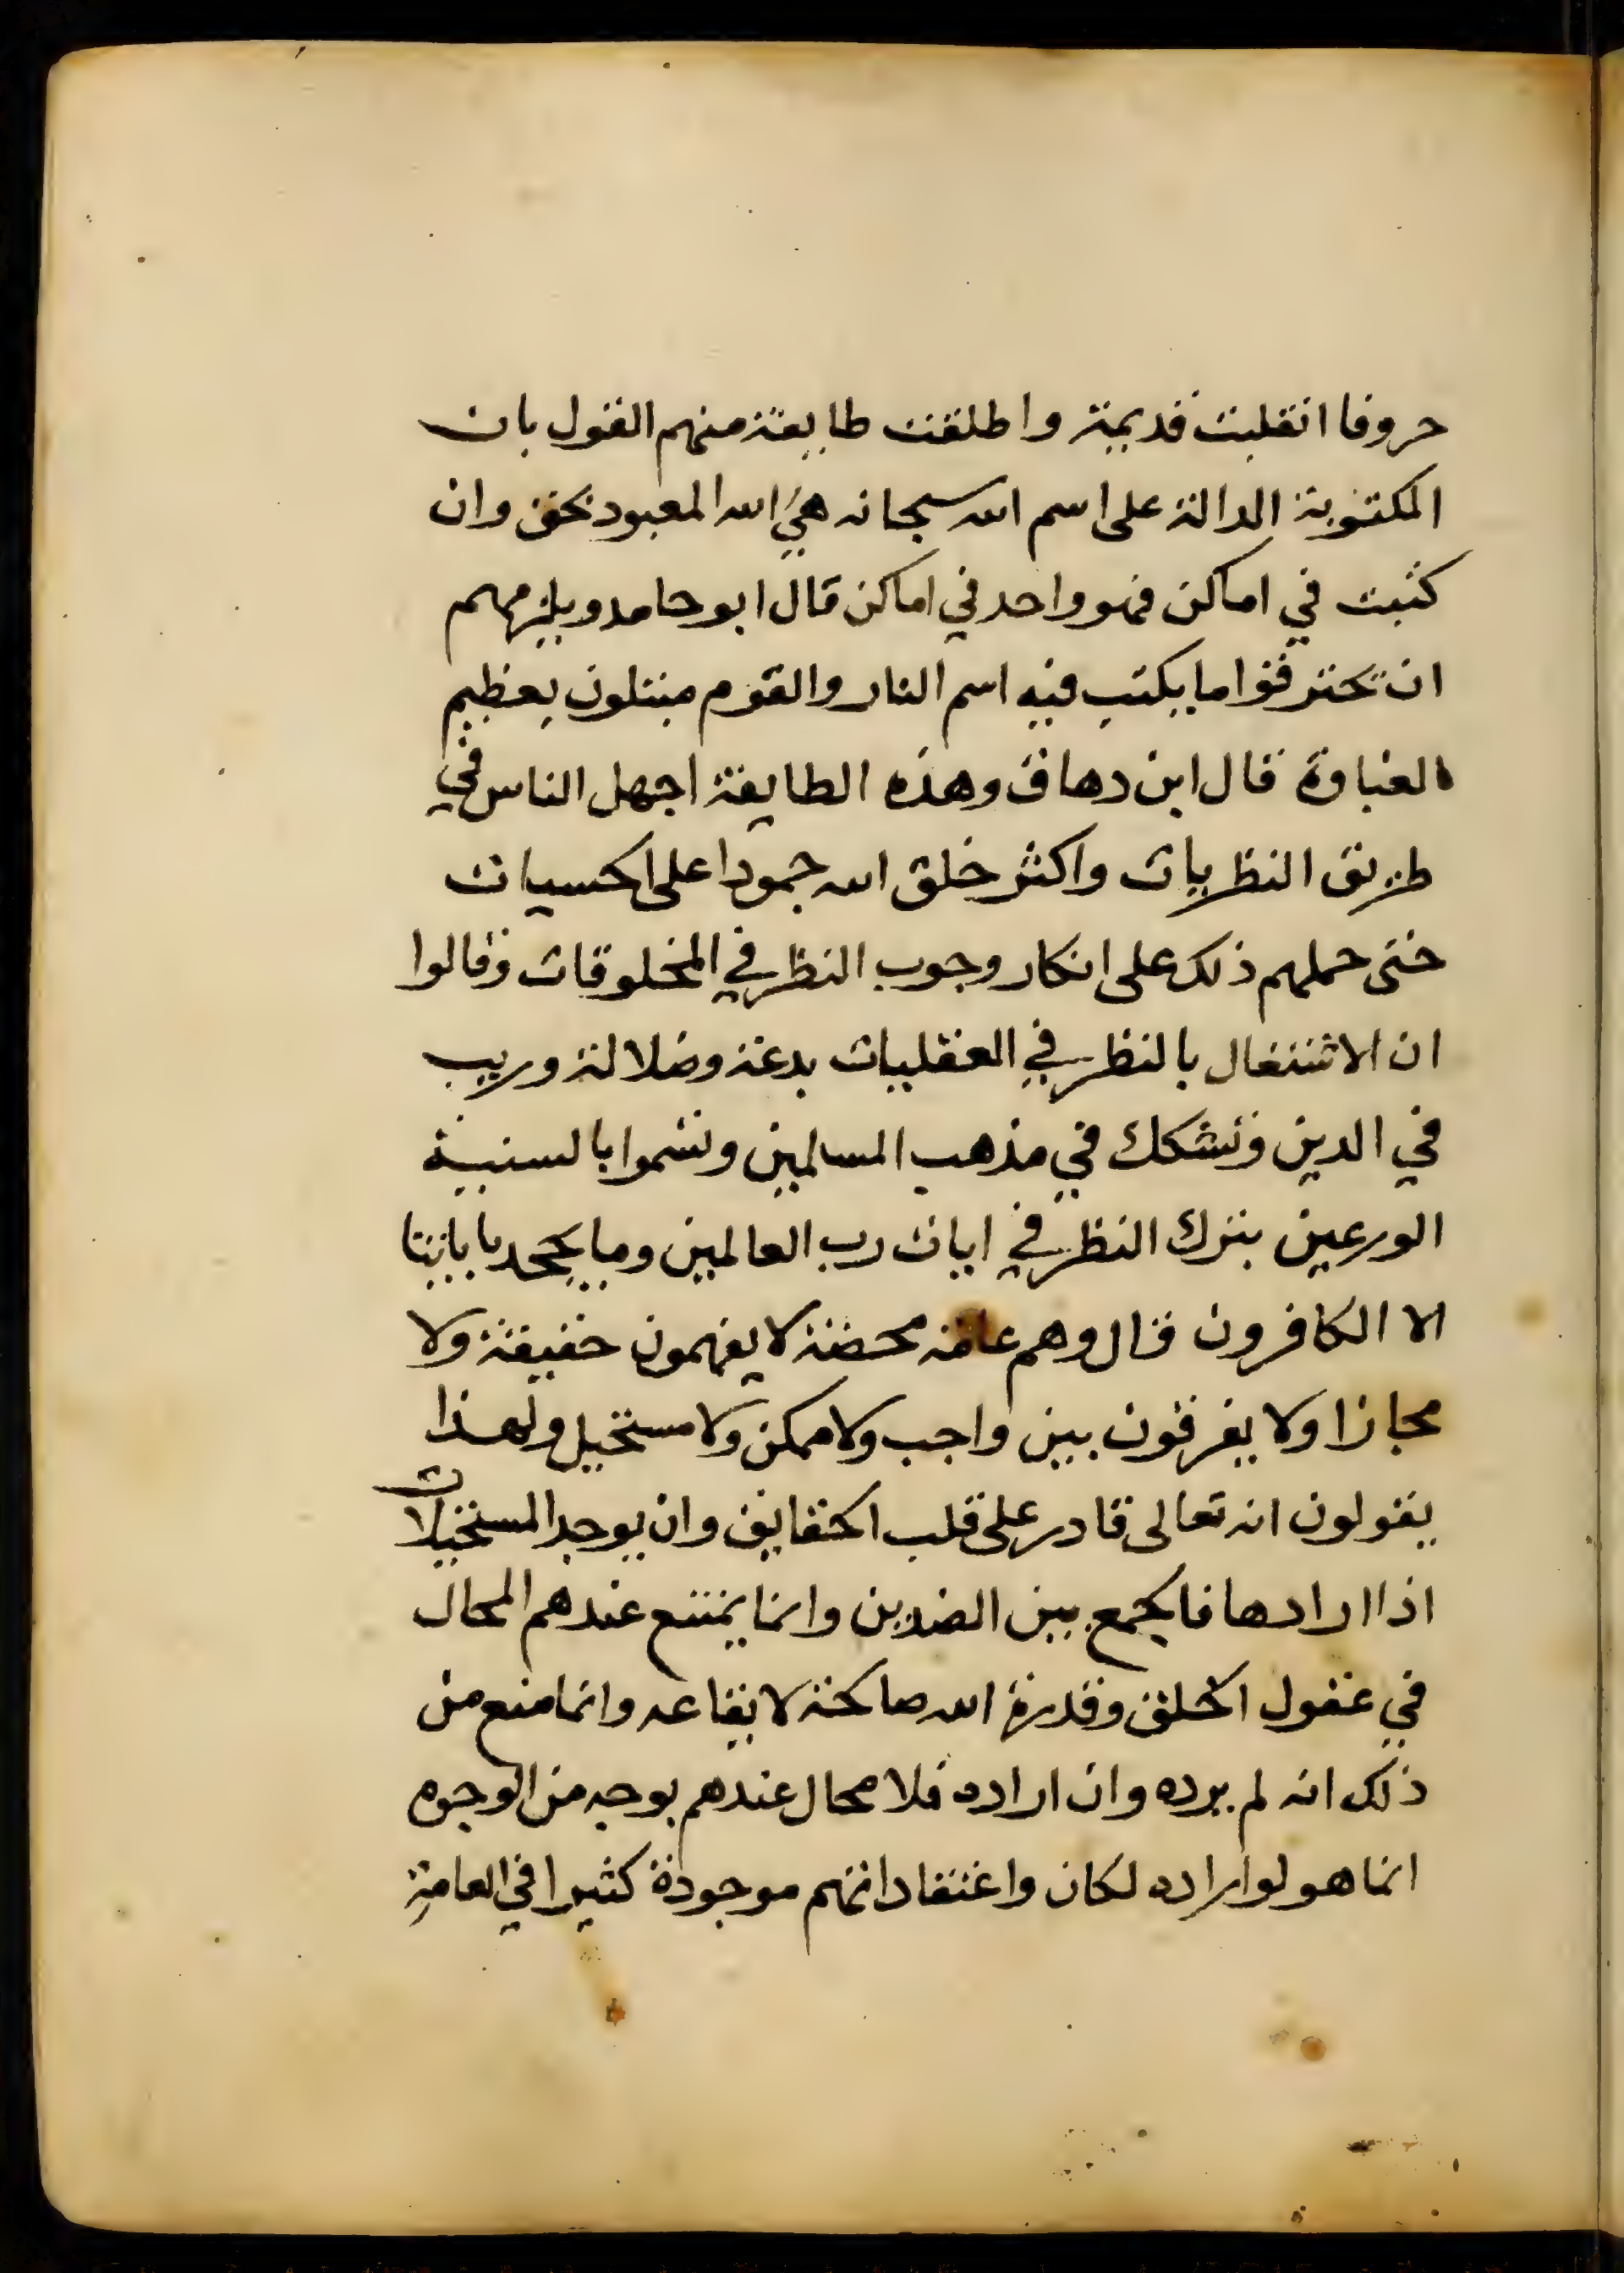 حروفا انقلبت قديمة واطلقت طايفة منهم القول بان
المكتوبة الدالة على اسم الله سبحانه هي الله المعبود بحق وان
كتبت في اماكن فهو واحد في اماكن قال ابو حامد ويلزمهم
ان تحترقوا ما يكتب فيه اسم النار والقوم مبتلون بعظيم
الغباوة قال ابن دهاق وهذه الطايفة اجهل الناس في
طريق النظريات واكثر خلق الله جمودا على الحسيات
حتى حملهم ذلك على انكار وجوب النظر في المخلوقات وقالوا
ان الاشتغال بالنظر في العقليات بدعة وضلالة وريب
في الدين وتشكك في مذهب المسلمين وتسموا بالسنية
الورعين بترك النظر في ايات رب العالمين وما يجحد باياتنا
الا الكافرون قال وهم عامة محضة لا يفهمون حقيقة ولا
مجازا ولا يفرقون بين واجب ولا ممكن ولا مستحيل ولهذا
يقولون انه تعالى قادر على قلب الحقايق وان يوجد المستحيلات
اذا ارادها فايجمع بين الضدين وانما يمتنع عندهم المحال
في عقول الخلق وقدرة الله صالحة لايقاعه وانما منع من
ذلك انه لم يرده وان اراده فلا محال عندهم بوجه من الوجوه
انما هو لو اراده لكان واعتقاداتهم موجودة كثيرا في العامة